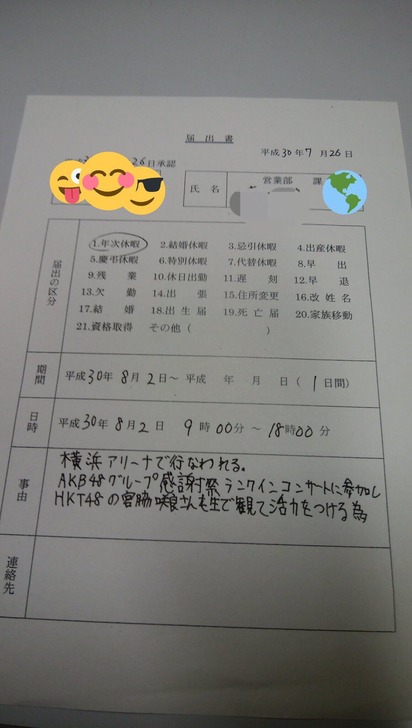 届出書
平成30年7月26日
26日承認
氏名
営業部 課
届出の区分
1.年次休暇 2.結婚休暇 3.忌引休暇 4.出産休暇
5.慶弔休暇 6.特別休暇 7.代替休暇 8.早出
9.残業 10.休日出勤 11.遅刻 12.早退
13.欠勤 14.出張 15.住所変更 16.改姓名
17.結婚 18.出生届 19.死亡届 20.家族移動
21.資格取得 その他( )
期間
平成30年8月2日～平成 年 月 日(1日間)
日時
平成30年8月2日 9時00分～18時00分
事由
横浜アリーナで行なわれる。
AKB48グループ感謝祭ランクインコンサートに参加し
HKT48の宮脇咲良さんを生で観て活力をつける為
連絡先